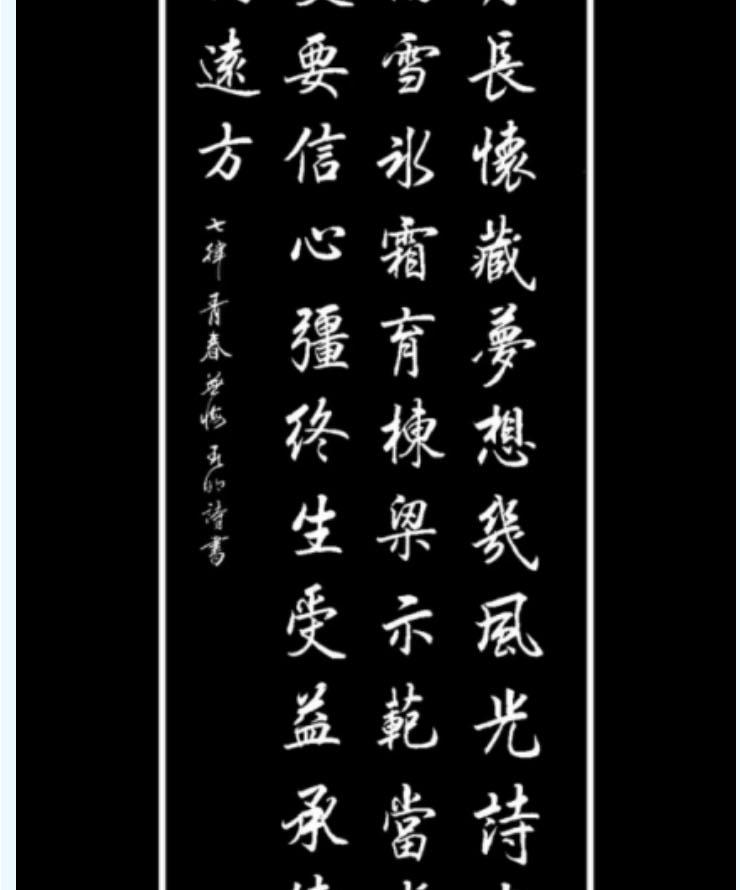 長懷藏夢想幾風光詩
雪氷霜育棟梁示範當
要信心彊終生受益承
遠方
七律 青春無悔 玉明詩書